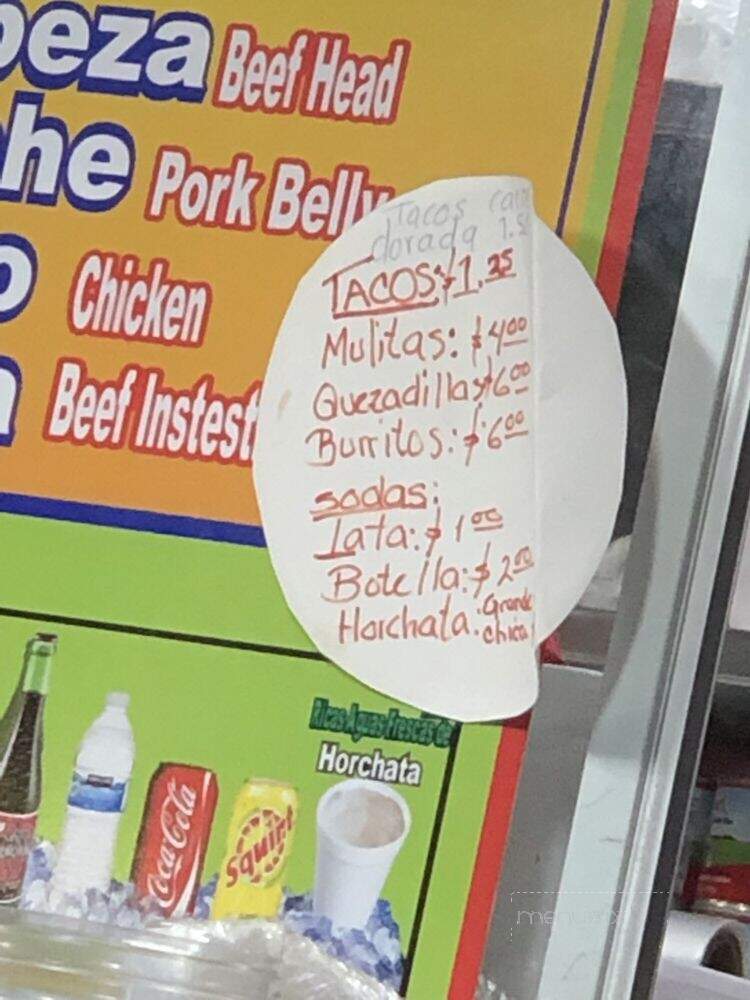 peza Beef Head
he Pork Belly
o Chicken
Beef Instest
Tacos
dorada 1.5
TACOS: $1.25
Mulitas: $4.00
Quezadillas $6.00
Burritos: $6.00
sodas:
Lata: $1.00
Botella: $2.00
Horchata. Grande
chica
Ricas Aguas Frescas de
Horchata
Coca-Cola
Squirt